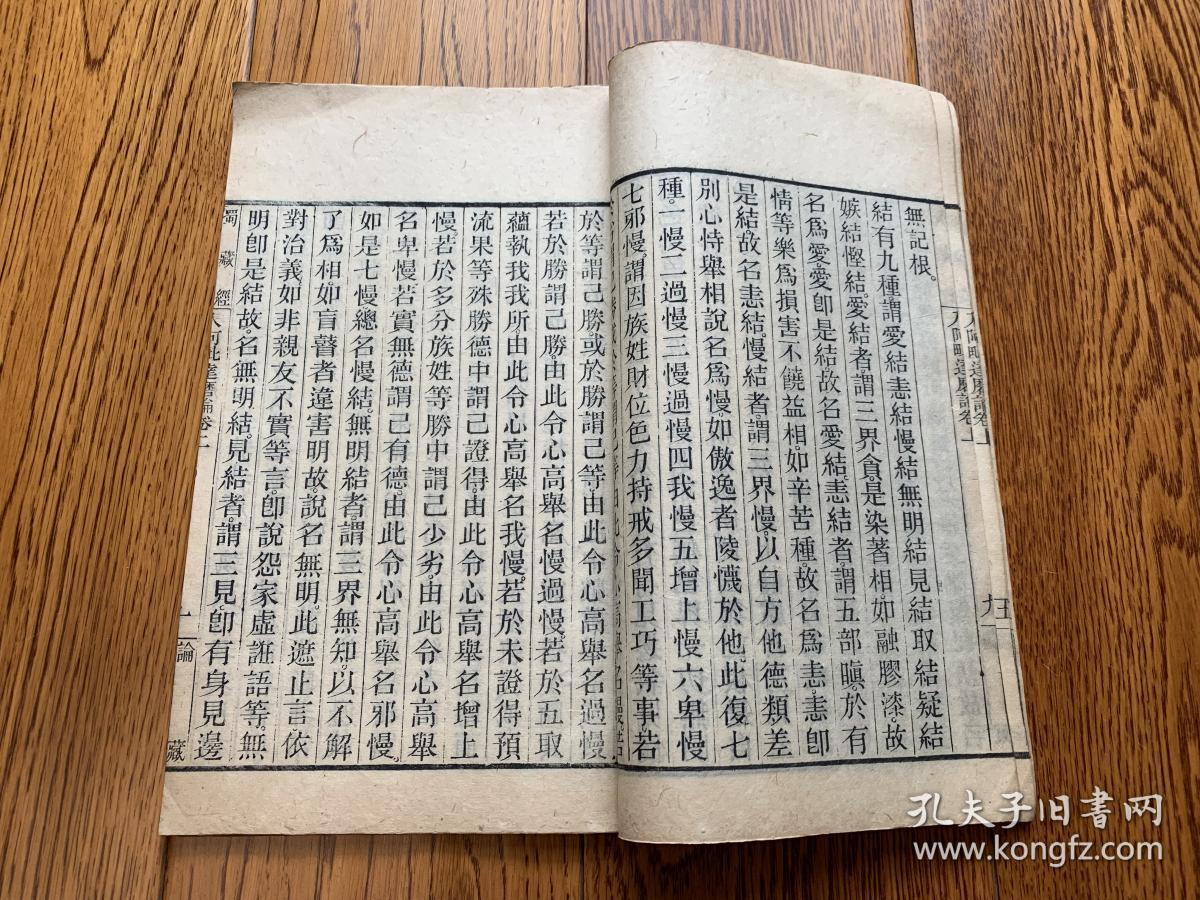 無記根。
結有九種。謂愛結恚結慢結無明結見結取結疑結
嫉結慳結。愛結者。謂三界貪。是染著相。如融膠漆。故
名爲愛。愛卽是結。故名愛結。恚結者。謂五部瞋。於有
情等樂爲損害不饒益相。如辛苦種。故名爲恚。恚卽
是結。故名恚結。慢結者。謂三界慢。以自方他德類差
別心恃舉相說名爲慢。如傲逸者陵懱於他。此復七
種。一慢二過慢三慢過慢四我慢五增上慢六卑慢
七邪慢。謂因族姓財位色力持戒多聞工巧等事。若
於等謂己勝。或於勝謂己等。由此令心高舉名過慢
若於勝謂己勝。由此令心高舉名慢過慢。若於五取
蘊執我我所由此令心高舉名我慢。若於未證得預
流果等殊勝德中謂己證得。由此令心高舉名增上
慢若於多分族姓等勝中謂己少劣。由此令心高舉
名卑慢若實無德謂己有德。由此令心高舉名邪慢。
如是七慢總名慢結。無明結者。謂三界無知。以不解
了爲相。如盲瞽者違害明故。說名無明。此遮止言依
對治義。如非親友不實等言。卽說怨家虛誑語等。無
明卽是結故。名無明結。見結者。謂三見。卽有身見邊
藏經
達磨論卷上
論
藏
孔夫子旧書网
www.kongfz.com